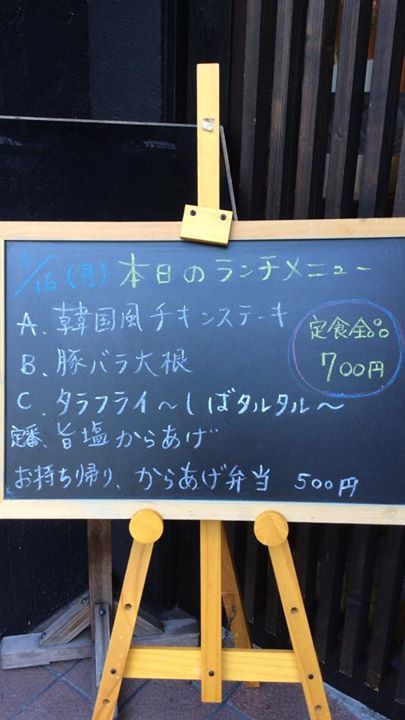 /16(月) 本日のランチメニュー
A. 韓国風チキンステーキ
B. 豚バラ大根
C. タラフライ～しばタルタル～
定番 旨塩からあげ
お持ち帰り、からあげ弁当 500円
定食全品
700円